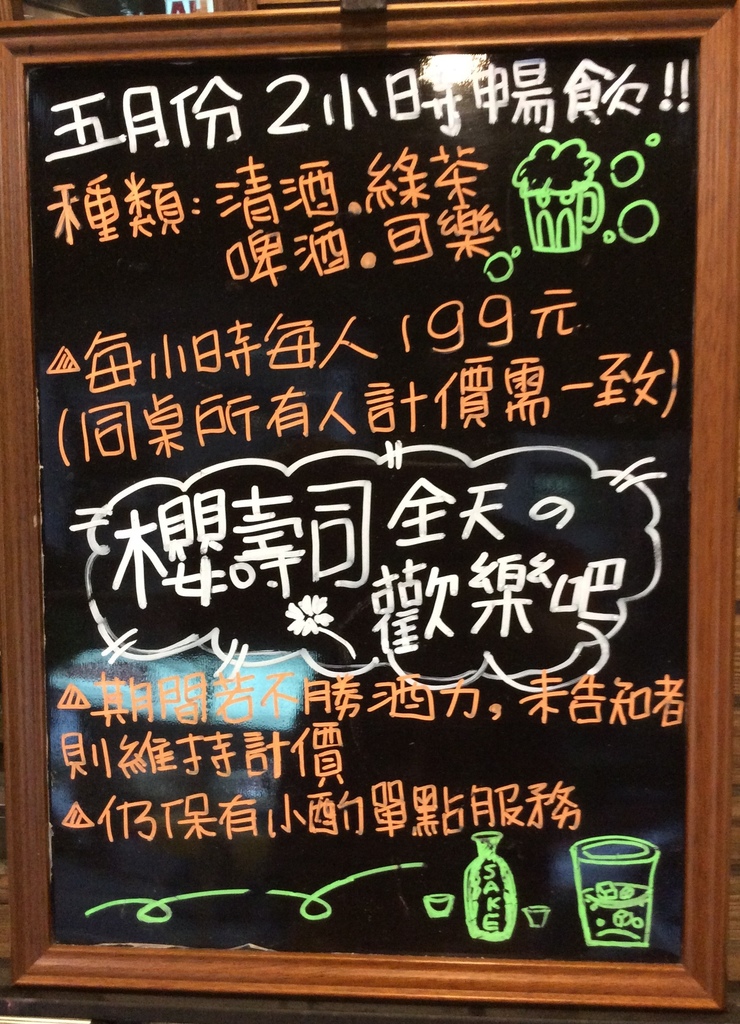 五月份2小時暢飲!!
種類:清酒.綠茶
啤酒.可樂
每小時每人199元
(同桌所有人計價需一致)
櫻壽司 全天の
歡樂吧
期間若不勝酒力,未告知者
則維持計價
仍保有小酌單點服務
SAKE